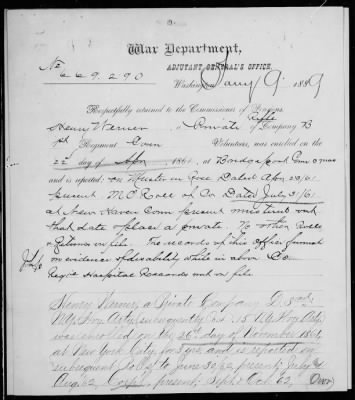 War Department,
ADJUTANT GENERAL'S OFFICE,
No 669.290
Washington, Jany 9, 1889
Respectfully returned to the Commissioner of Pensions.
Henry Werner, a Private of Rifle Company B
1st Regiment Conn Volunteers, was enrolled on the
22d day of Apr, 1861, at Bridgeport Conn 3 mos
and is reported: on Muster in Roll Dated Apr 23/61
present. M.O. Roll of Co Dated July 31/61
at New Haven Conn present mustered out
that date of place a private. No other Rolls
or Returns on file. The records of this Office furnish
no evidence of disability while in above Co.
Regt'l Hospital Records not on file.
Henry Werner, a Private Company D,
subsequently Co. 15 N.Y.
was enrolled on the 26th day of November 1861
at New York City, for 3 yrs and is reported on
subsequent rolls to June 30/62, present; July &
Aug 62 Corpl, present; Sept & Oct 62, (Over)